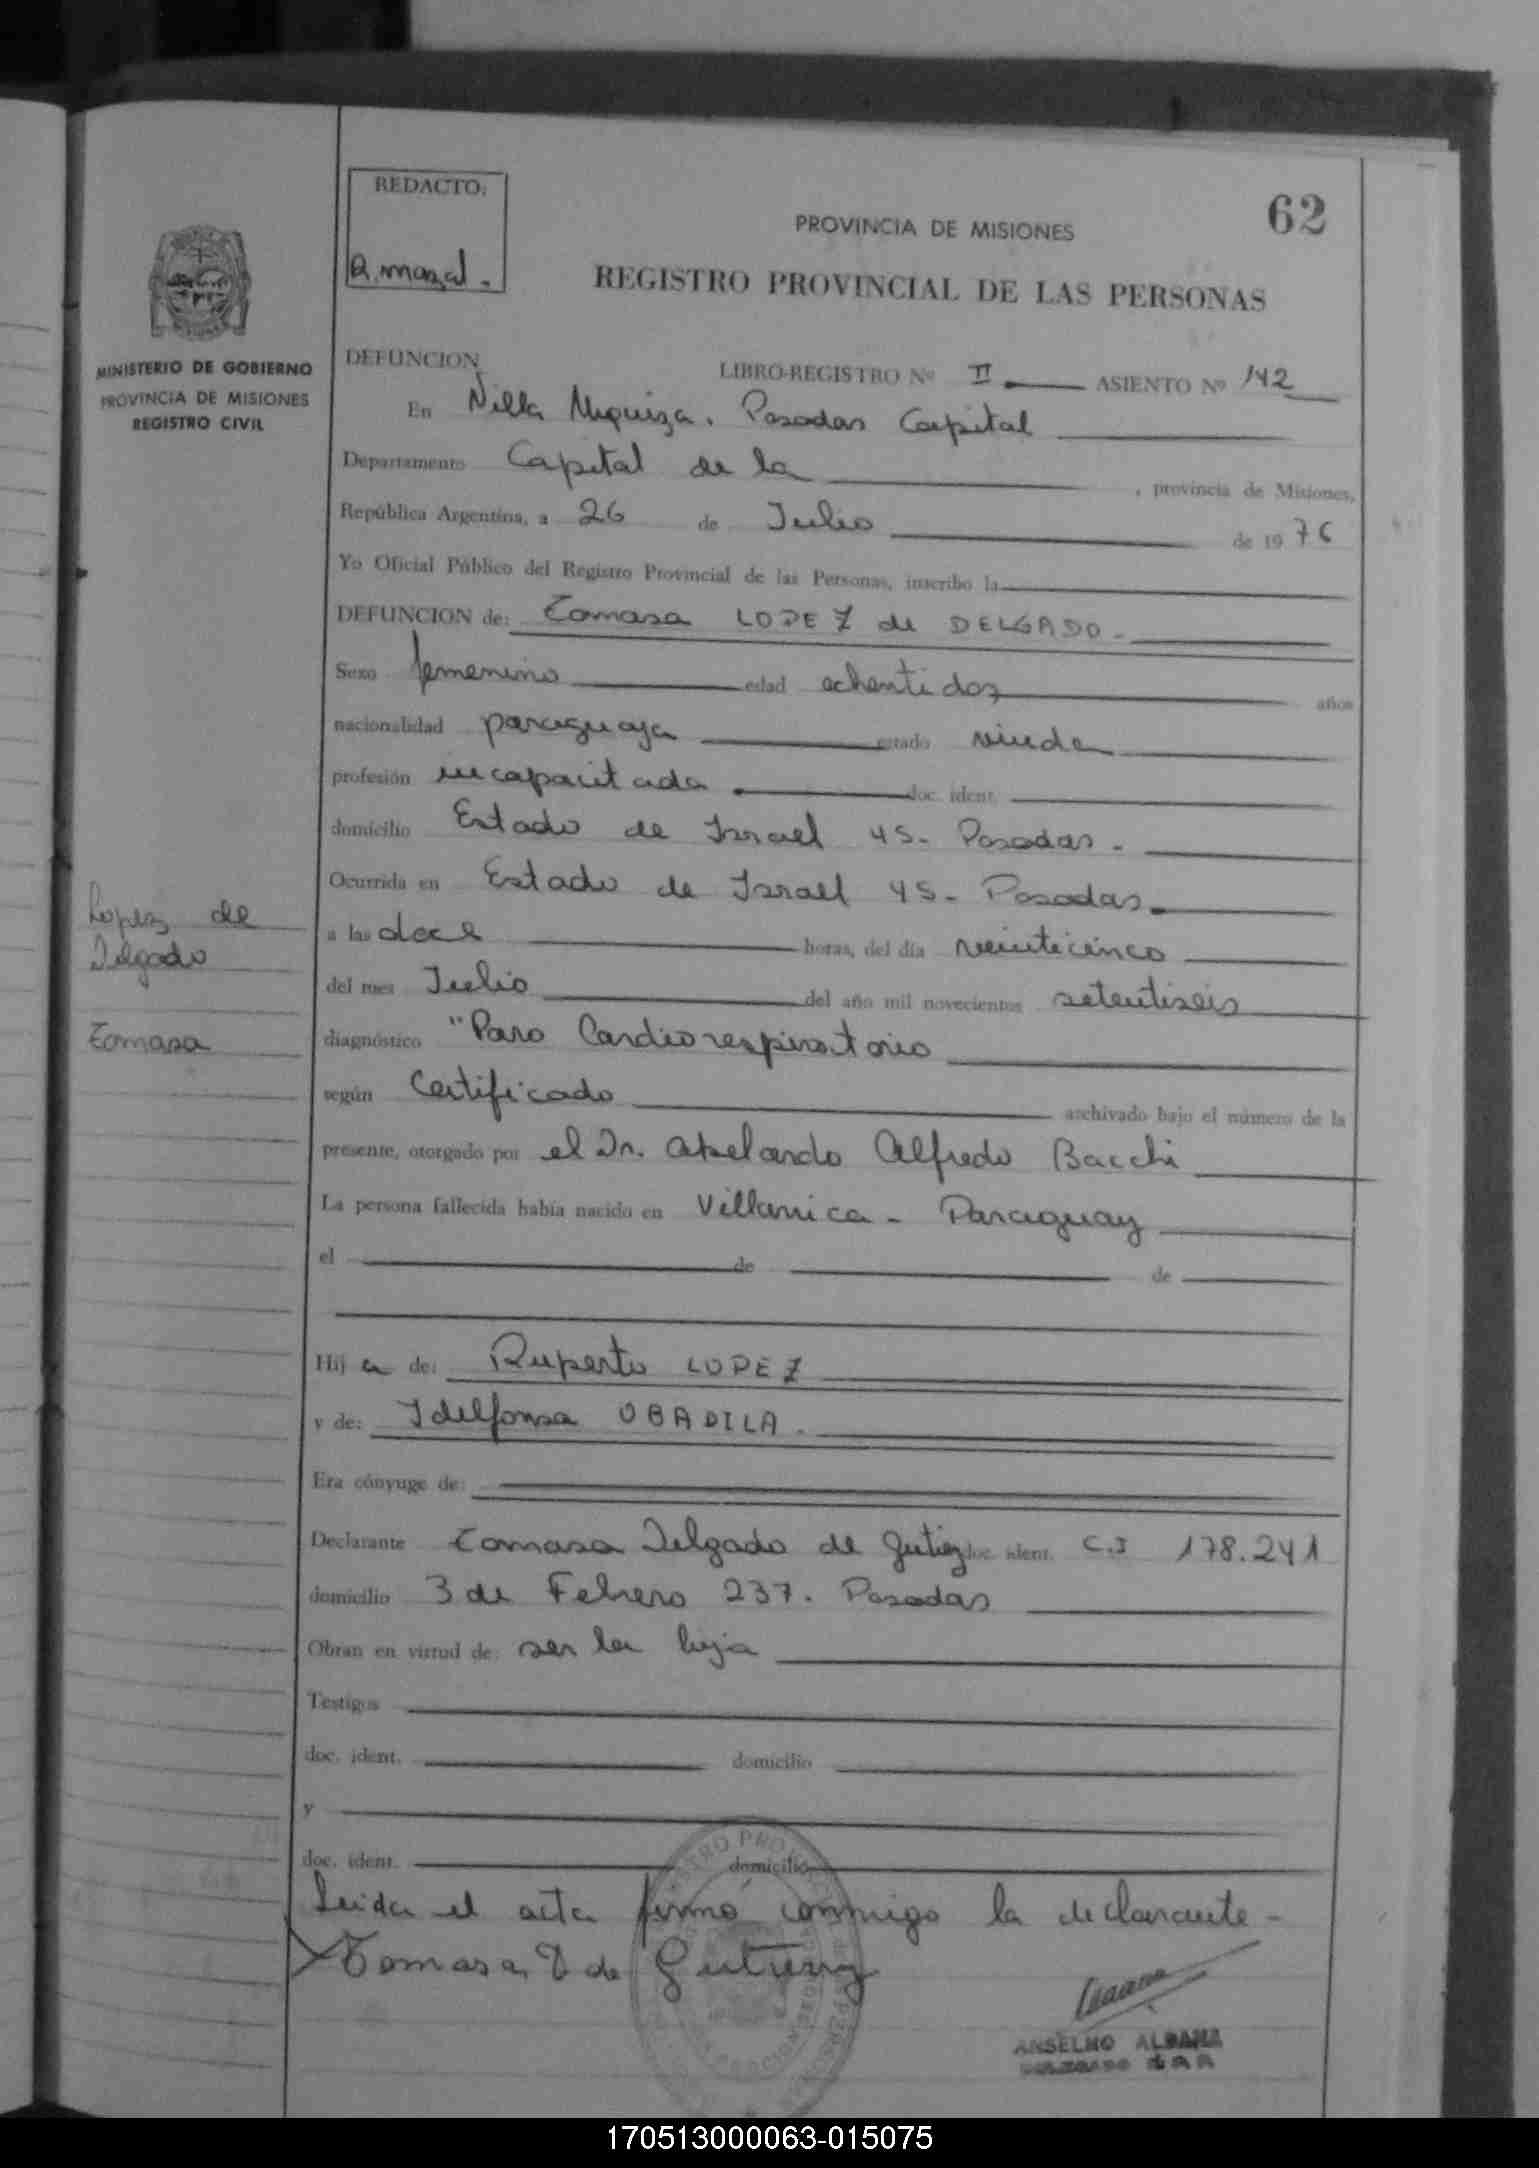 REDACTO:
62
PROVINCIA DE MISIONES
REGISTRO PROVINCIAL DE LAS PERSONAS
MINISTERIO DE GOBIERNO
PROVINCIA DE MISIONES
REGISTRO CIVIL
DEFUNCION LIBRO-REGISTRO Nº II ASIENTO Nº 142
En Villa Urquiza. Posadas Capital
Departamento Capital de la , provincia de Misiones,
República Argentina, a 26 de Julio de 1976
Yo Oficial Público del Registro Provincial de las Personas, inscribo la
DEFUNCION de: Tomasa LOPEZ de DELGADO.
Sexo femenino edad ochentidos años
nacionalidad paraguaya estado viuda
profesión incapacitada doc. ident.
domicilio Estado de Israel 45- Posadas.
Ocurrida en Estado de Israel 45- Posadas.
Lopez de
Delgado
Tomasa
a las doce horas, del día veinticinco
del mes Julio del año mil novecientos setentiseis
diagnóstico "Paro Cardiorespiratorio
según Certificado archivado bajo el número de la
presente, otorgado por el Dr. Abelardo Alfredo Bacchi
La persona fallecida había nacido en Villarrica - Paraguay
el de de
Hij a de: Ruperto LOPEZ
y de: Idelfonsa OBADILA.
Era cónyuge de:
Declarante Tomasa Delgado de doc. ident. C.I 178.241
domicilio 3 de Febrero 237. Posadas
Obran en virtud de: ser la hija
Testigos
doc. ident. domicilio
y
doc. ident. domicilio
Leida el acta firmó conmigo la declarante-
Tomasa D de
ANSELMO ALDANA
170513000063-015075